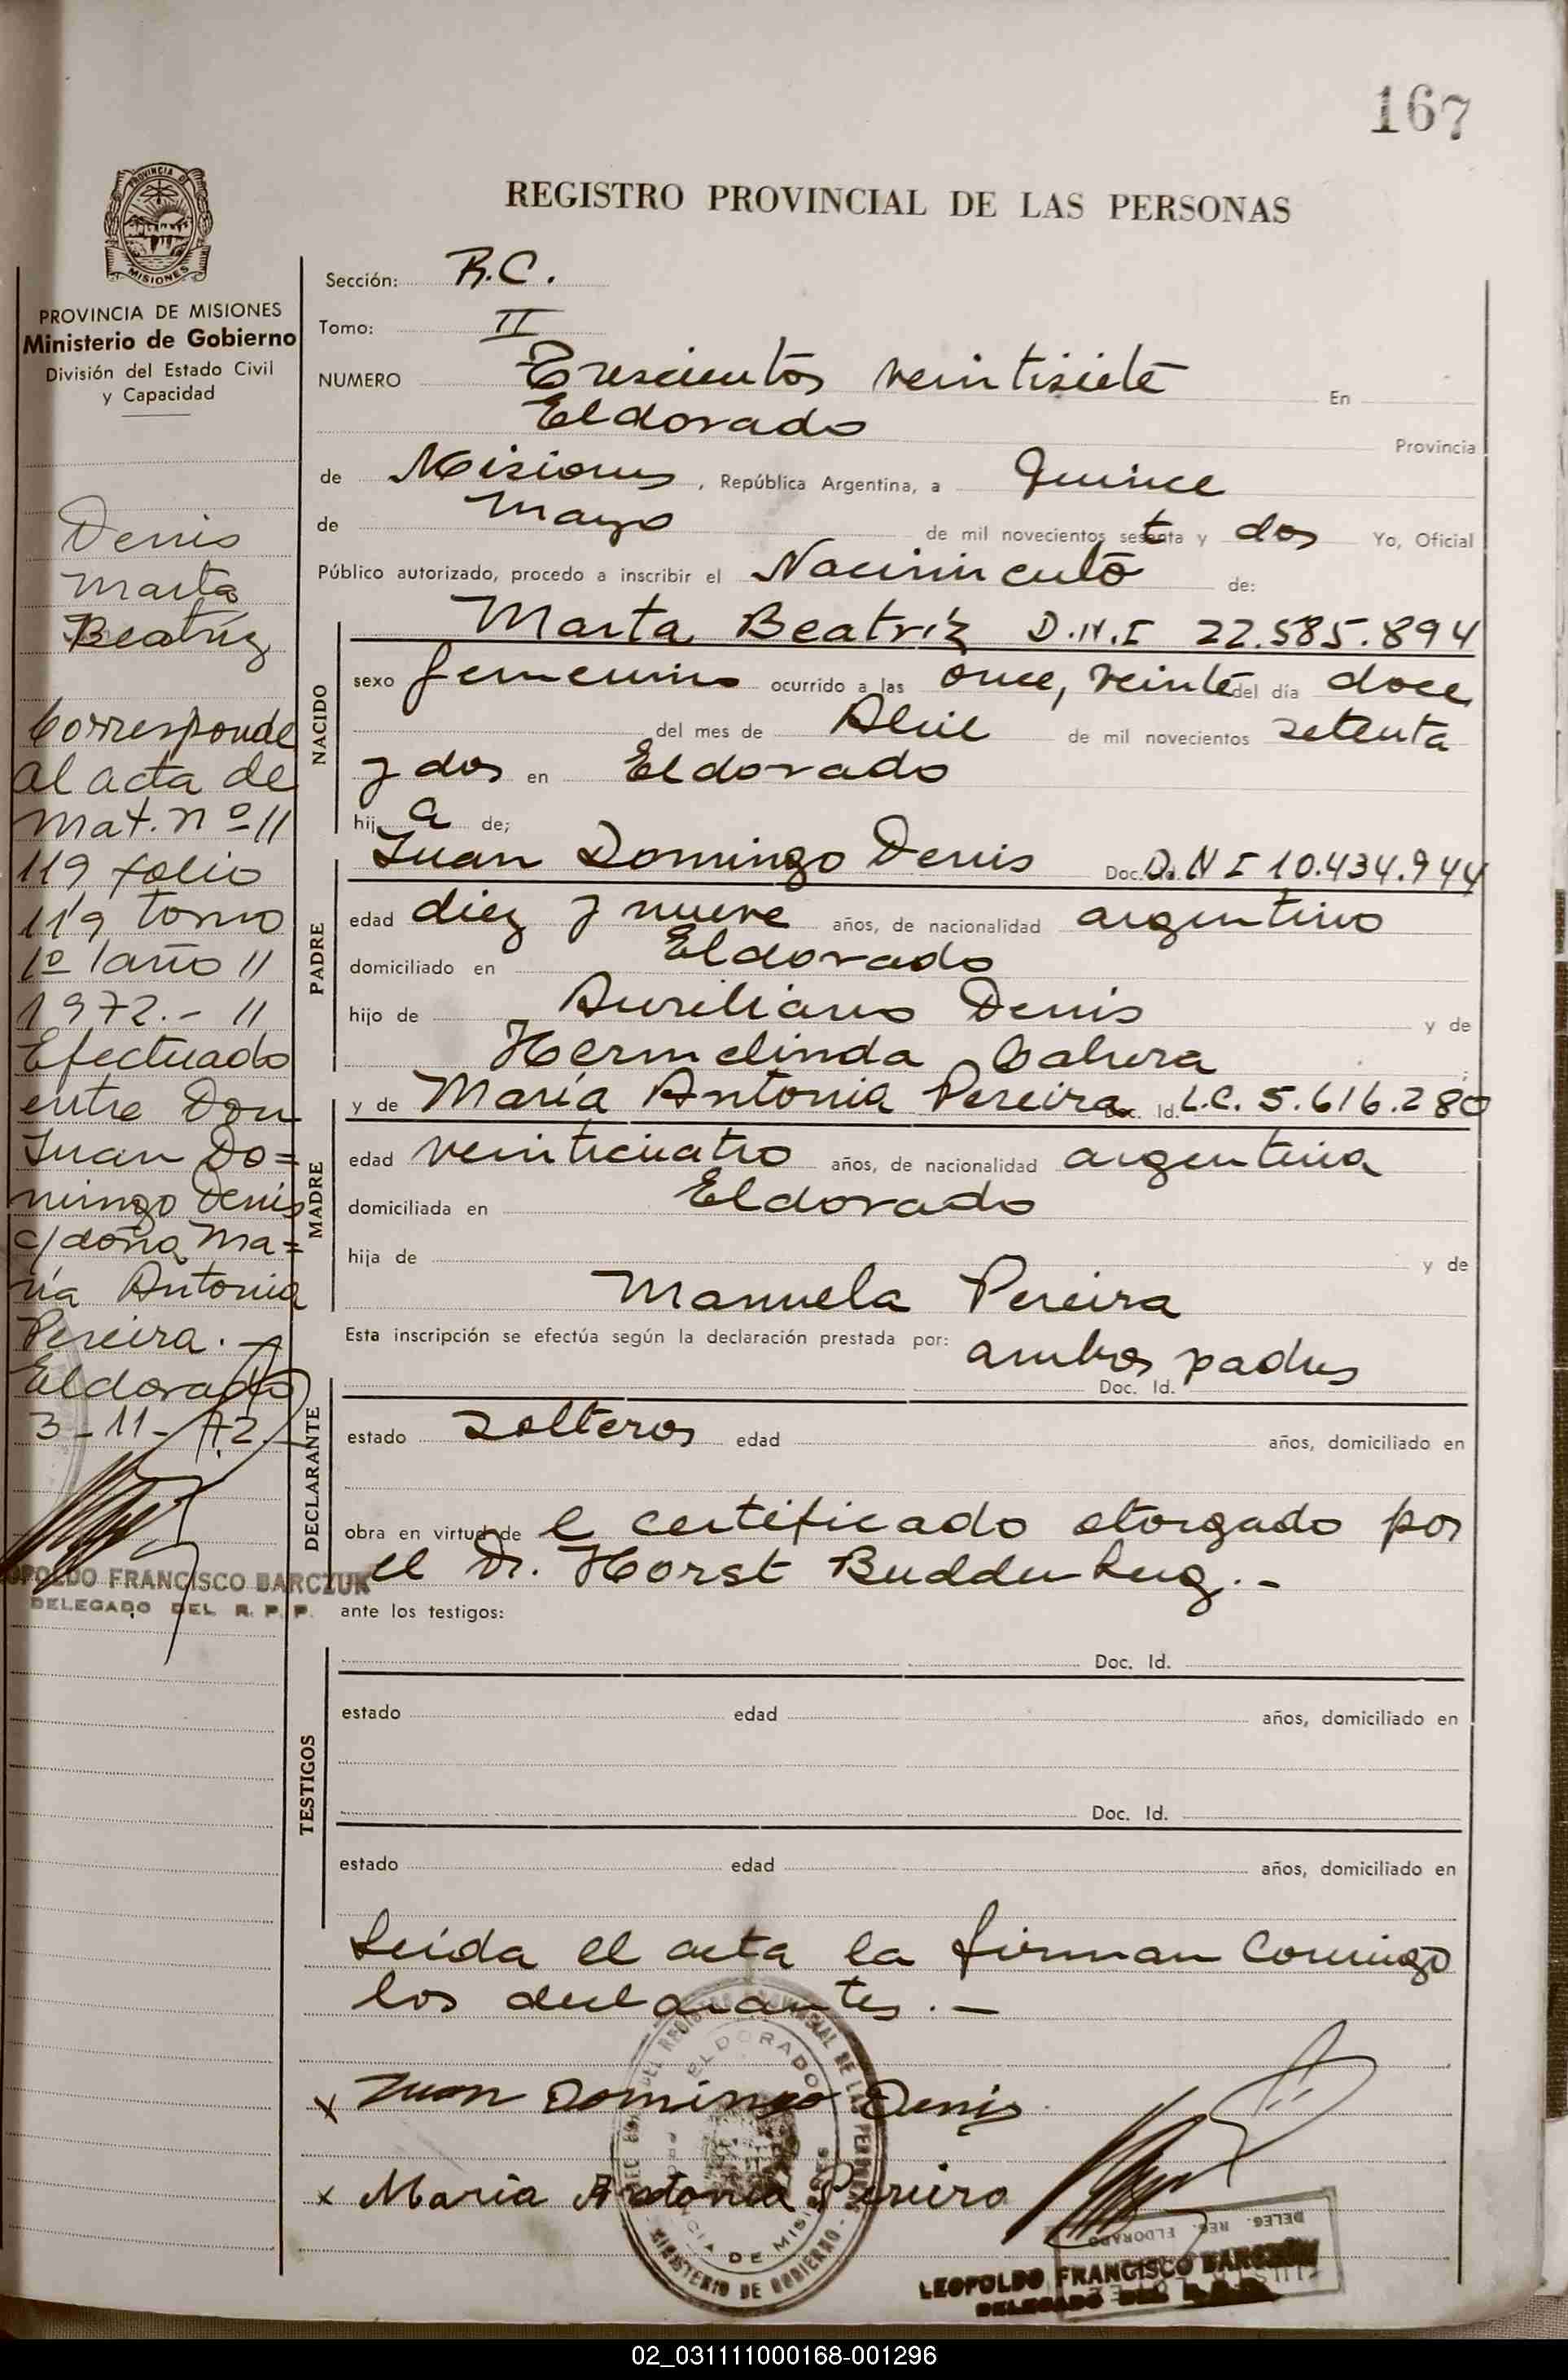 167
PROVINCIA DE
MISIONES
PROVINCIA DE MISIONES
Ministerio de Gobierno
División del Estado Civil
y Capacidad
Denis
Marta
Beatriz
Corresponde
al acta de
Mat. nº 11
119 folio
119 tomo
1º /año 11
1972.- 11
Efectuado
entre Don
Juan Do=
mingo Denis
c/doña Ma=
ría Antonia
Pereira.-
Eldorado
3-11-72
LEOPOLDO FRANCISCO BARCZUK
DELEGADO DEL R. P. P.
REGISTRO PROVINCIAL DE LAS PERSONAS
Sección: R.C.
Tomo: II
NUMERO Trescientos veintisiete En
Eldorado Provincia
de Misiones, República Argentina, a Quince
de Mayo de mil novecientos setenta y dos Yo, Oficial
Público autorizado, procedo a inscribir el Nacimiento de:
NACIDO
Marta Beatriz D.N.I 22.585.894
sexo femenino ocurrido a las once, veinte del día doce
del mes de Abril de mil novecientos setenta
y dos en Eldorado
hij a de;
PADRE
Juan Domingo Denis Doc. D.N I 10.434.944
edad diez y nueve años, de nacionalidad argentino
domiciliado en Eldorado
hijo de Aureliano Denis y de
Hermelinda Cabrera
MADRE
y de María Antonia Pereira Doc. Id. L.C. 5.616.280
edad veinticuatro años, de nacionalidad argentina
domiciliada en Eldorado
hija de y de
Manuela Pereira
Esta inscripción se efectúa según la declaración prestada por: ambos padres
DECLARANTE
Doc. Id.
estado solteros edad años, domiciliado en
obra en virtud de l certificado otorgado por
el Dr. Horst Buddenberg.-
ante los testigos:
TESTIGOS
Doc. Id.
estado edad años, domiciliado en
Doc. Id.
estado edad años, domiciliado en
Leida el acta la firman conmigo
los declarantes.-
x Juan Domingo Denis
x Maria Antonia Pereira
ELDORADO
MINISTERIO DE GOBIERNO
DELEG. REG. ELDORADO
LEOPOLDO FRANCISCO BARCZUK
DELEGADO DEL R.P.P.
02_031111000168-001296